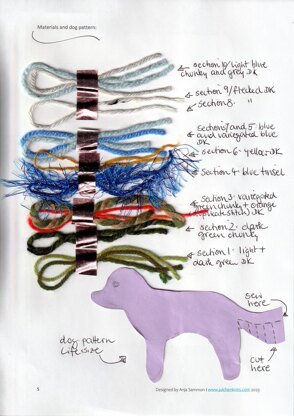 Materials and dog pattern:
section 10/light blue
chunky and grey DK
section 9/flecked DK
section 8- "
Section 7 and 5- blue
and variegated blue
DK
section 6- yellow-DK
Section 4- blue tinsel
Section 3- variegated
green chunky + orange
stitch) DK
section 2- dark
green chunky
section 1- light +
dark green DK
sew
here
dog pattern
life size
cut
here
5
Designed by Anja Sammon I www.julchenknits.com 2023